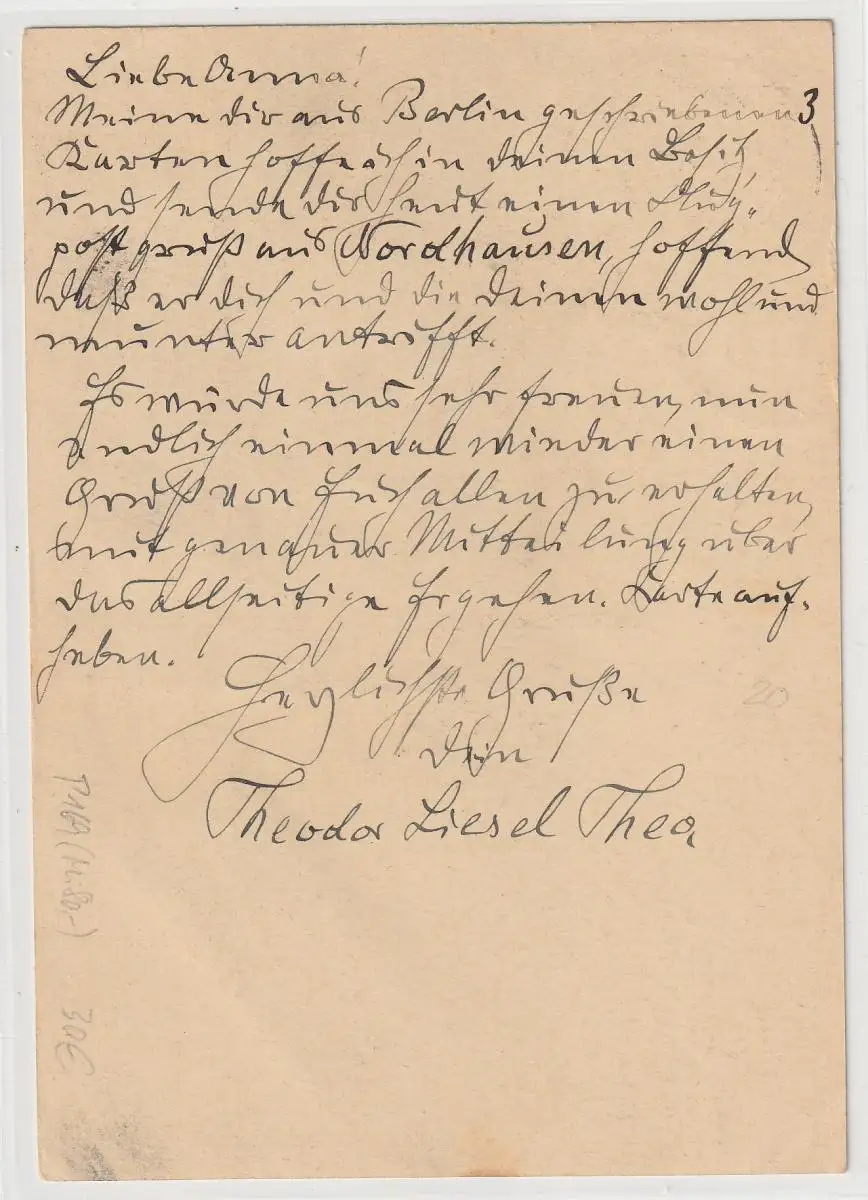 Liebe Anna!
Meine dir aus Berlin geschriebenen 3
Karten hoffe ich in deinen Besitz,
und sende dir heut einen Flug-
postgruß aus Nordhausen, hoffend
daß er dich und die deinen wohl und
munter antrifft.
Es würde uns sehr freuen, nun
endlich einmal wieder einen
Gruß von Euch allen zu erhalten,
mit genauer Mitteilung über
das allseitige Ergehen. Karte auf-
heben.
Herzlichste Grüße
dein
Theodor Liesel Thea
20
P. 169 (Mi. 80,-)
30€